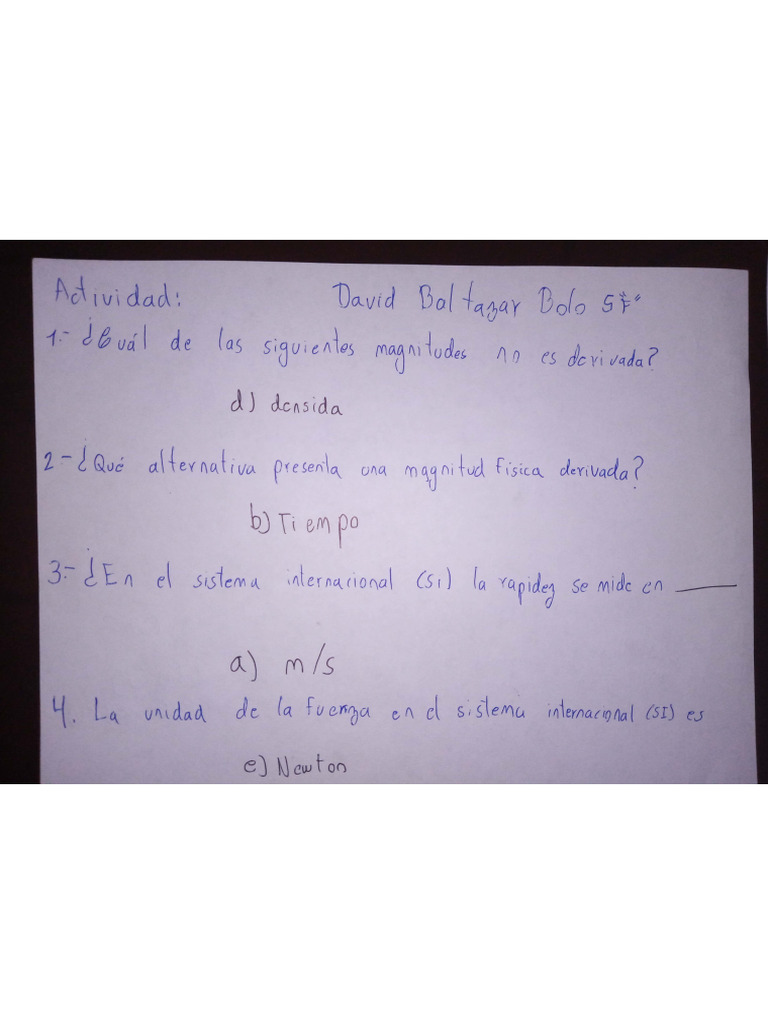 Actividad: David Baltazar Bolo 5 "F"
1.- ¿Cuál de las siguientes magnitudes no es derivada?
d) densida
2.- ¿Qué alternativa presenta una magnitud física derivada?
b) Tiempo
3.- ¿En el sistema internacional (SI) la rapidez se mide en ______
a) m/s
4. La unidad de la fuerza en el sistema internacional (SI) es
e) Newton